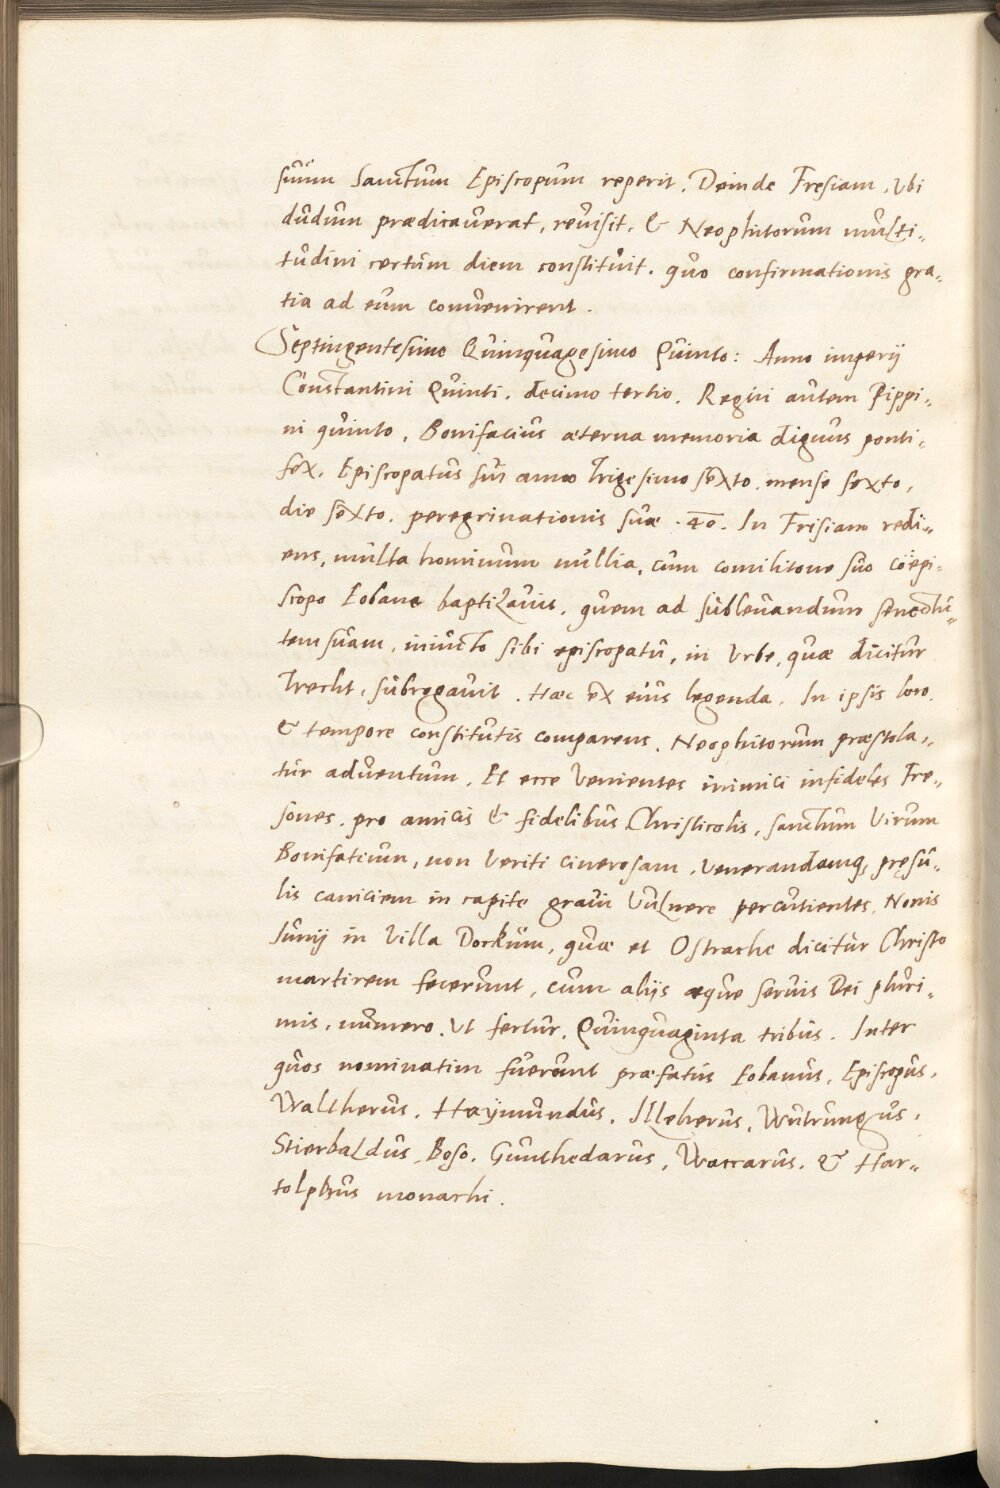 suum Sanctum Episcopum reperit. Deinde Fresiam, Vbi
dudum prædicauerat, reuisit. & Neophitorum multi„
tudini certum diem constituit. quo confirmationis gra„
tia ad eum conuenirent.
Septingentesimo Quinquagesimo Quinto: Anno imperij
Constantini Quinti. decimo tertio. Regni autem Pippi„
ni quinto, Bonifacius æterna memoria dignus ponti„
fex. Episcopatus sui anno Trigesimo sexto. mense sexto,
die sexto. peregrinationis suæ .40. In Frisiam redi„
ens, multa hominum millia, cum comilitone suo coëpi„
scopo Eobano baptizauit. quem ad subleuandum senectu„
tem suam, iniuncto sibi episcopatu, in Vrbe, quæ dicitur
Trecht, subrogauit. Hæc ex eius legenda. In ipsis loco.
& tempore constitutis comparens, Neophitorum præstola„
tur aduentum. Et ecce Venientes inimici infideles Fre„
sones, pro amicis & fidelibus Christicolis, sanctum Virum
Bonifatium, non Veriti cinerosam, Venerandamq; pręsu„
lis caniciem in capite graui Vulnere percutientes, Nonis
Junij in Villa Dorkum, quæ et Ostrache dicitur Christo
martirem fecerunt, cum alijs æque seruis Dei pluri„
mis, numero. Vt fertur. Quinquaginta tribus. Inter
quos nominatim fuerunt præfatus Eobanus, Episcopus,
Waltherus. Haÿmundus. Illeherus, Wutrungus,
Stierbaldus, Boso. Gunthedarus, Waccarus. & Har„
tolphus monachi.